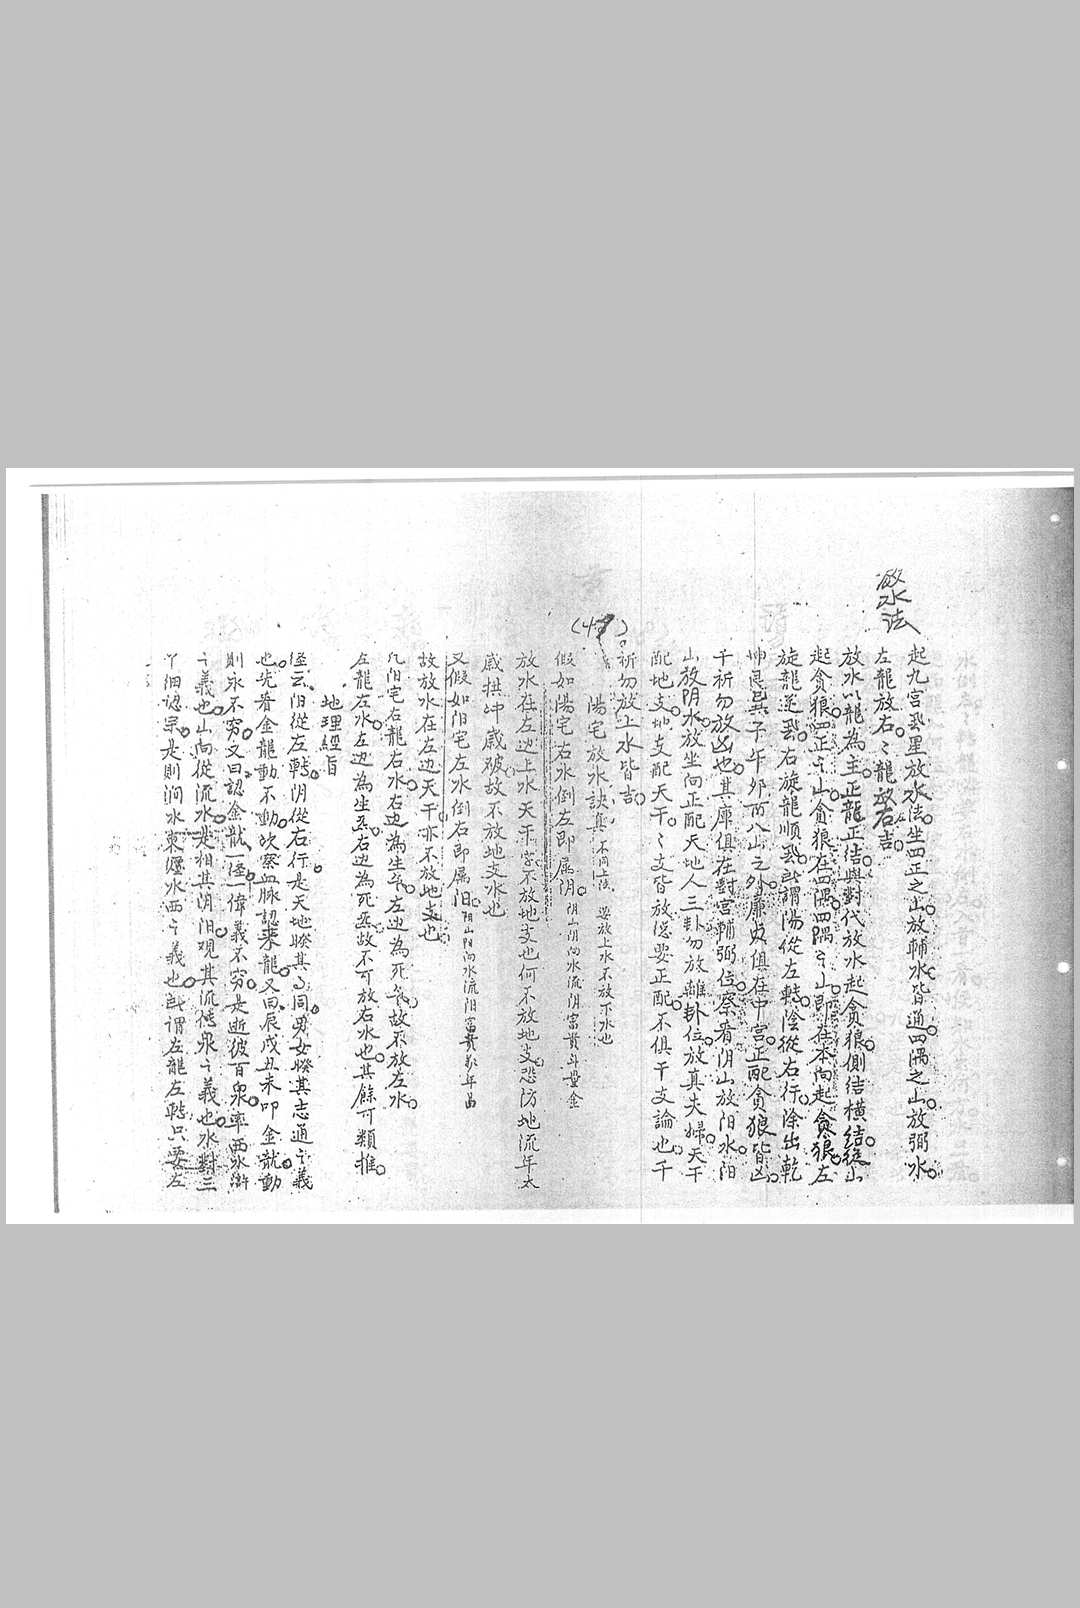 放水法
起九宮飛星放水法坐四正之山放輔水皆通四隅之山放弼水
左龍放右〻龍放右吉
放水以龍為主正龍正結與對代放水起貪狼側結橫結從山
起貪狼四正〻山貪狼在四隅四隅〻山即在本向起貪狼左
旋龍逆飛右旋龍順飛所謂陽從左轉陰從右行除出乾
坤艮巽子午卯酉八山之外廉貞俱在中宮正配貪狼皆凶
千祈勿放凶也其庫俱在對宮輔弼位察看阴山放阳水阳
山放阴水放坐向正配天地人三卦勿放離卦位放真夫婦天干
配地支地支配天干〻支皆放隠要正配不俱干支論也千
祈勿放上水皆吉
(47)
陽宅放水訣真 不同上法 要放上水不放下水也
假如陽宅右水倒左即属阴 阴山阴向水流阴富貴斗量金
放水在左边上水天干字不放地支也何不放地支恐防地流年太
歲拱冲歲破故不放地支水也
又假如阳宅左水倒右即属阳 阳山阳向水流阳富貴於年昌
故放水在左边天干亦不放地支也
凡阳宅右龍右水右边為生氣左边為死氣故不放左水
左龍左水左边為生氣右边為死氣故不可放右水也其餘可類推
地理經旨
経云阳從左轉阴從右行是天地暌其同男女暌其志通〻義
也先看金龍動不動次察血脉認来龍又曰辰戌丑未叩金龍動
則永不窮又曰認金龍一経一偉義不窮是逝彼百泉率西水滸
〻義也山向從流水是相其阴阳观其流傳泉〻義也水對三
丫細認宗是則澗水東瀍水西〻義也所謂左龍左轉只要左